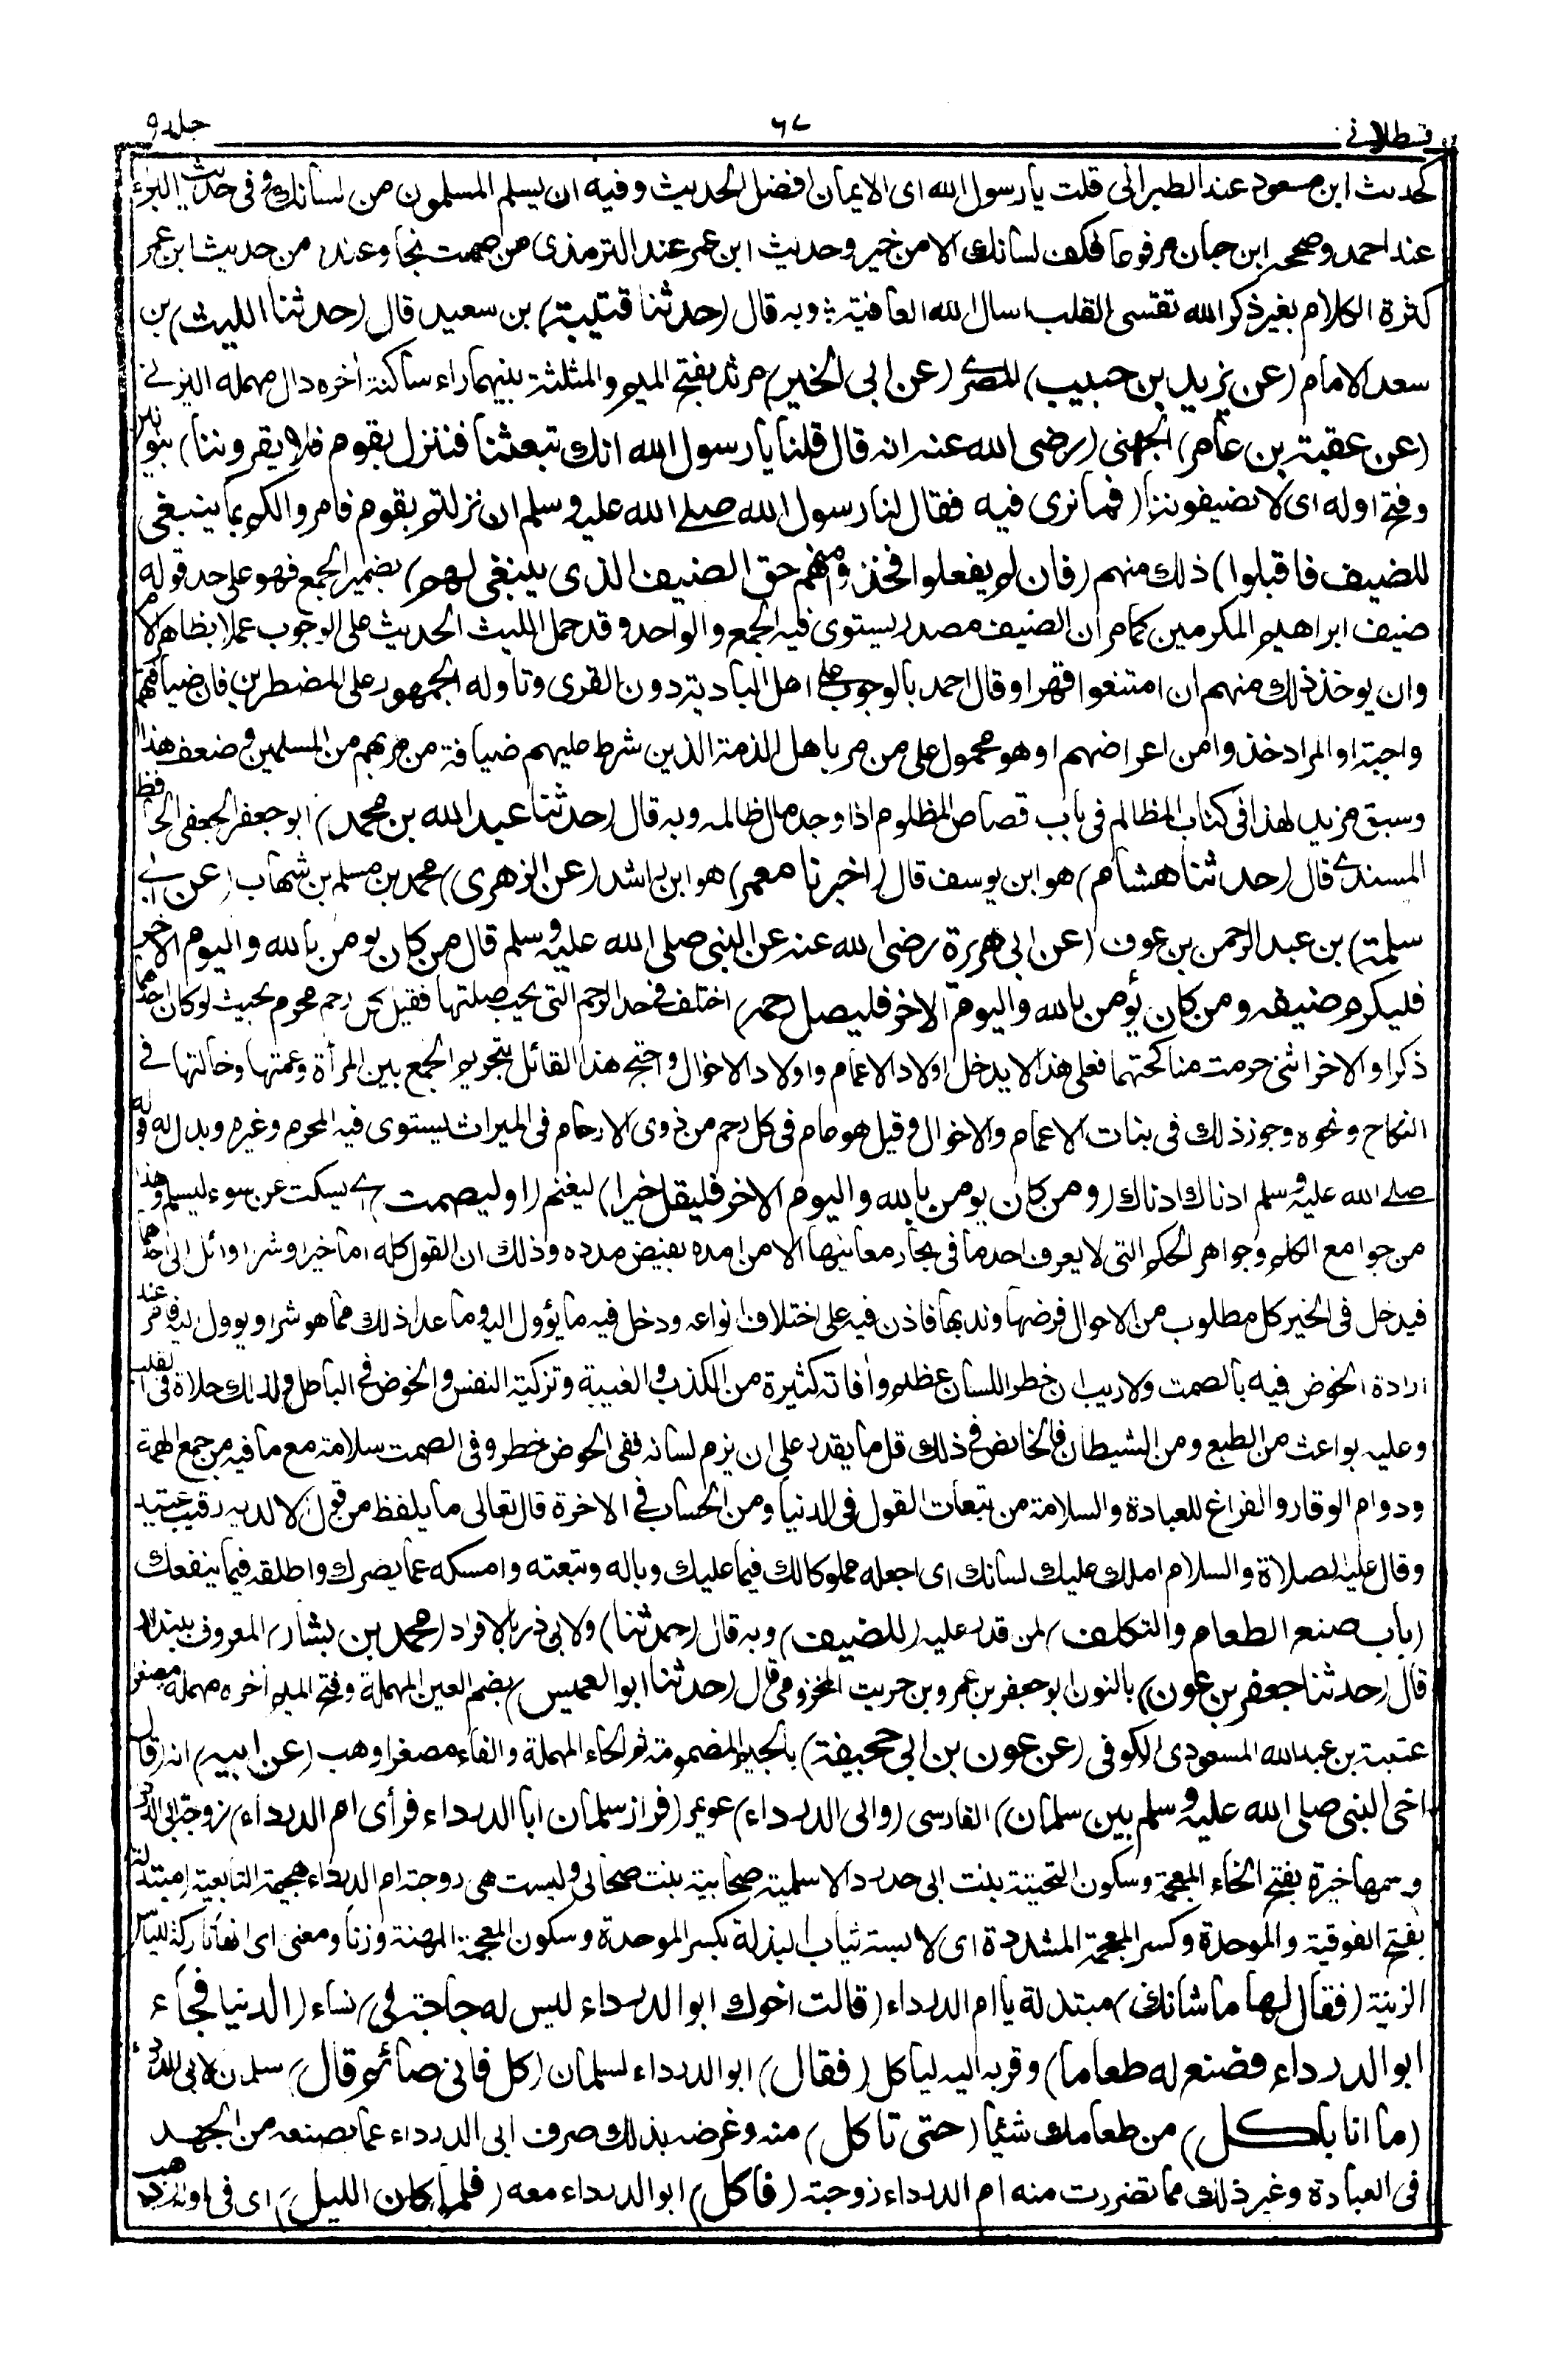 قسطلاني
٦٧
جلد ٩
كحديث ابن مسعود عند الطبراني قلت يا رسول الله اى الايمان افضل الحديث وفيه ان يسلم المسلمون من لسانك وفى حديث البراء
عند احمد وصححه ابن حبان مرفوعا فكف لسانك الا من خير وحديث ابن عمر عند الترمذى من صمت نجا وعنده من حديث ابن عمر
كثرة الكلام بغير ذكر الله تقسى القلب اسال الله العافية وبه قال (حدثنا قتيبة) بن سعيد قال (حدثنا الليث) بن
سعد الامام (عن يزيد بن حبيب) المصرى (عن ابى الخير) مرثد بفتح الميم والمثلثة بينهما راء ساكنة اخره دال مهمله اليزنى
(عن عقبة بن عامر) الجهنى (رضى الله عنه انه قال قلنا يا رسول الله انك تبعثنا فننزل بقوم فلا يقروننا) بنونين
وفتح اوله اى لا يضيفوننا (فما ترى فيه فقال لنا رسول الله صلى الله عليه وسلم ان نزلتم بقوم فامروا لكم بما ينبغى
للضيف فاقبلوا) ذلك منهم (فان لم يفعلوا فخذوا منهم حق الضيف الذى ينبغى لهم) بضمير الجمع فهو على حد قوله
ضيف ابراهيم المكرمين كما مر ان الضيف مصدر يستوى فيه الجمع والواحد وقد حمل الليث الحديث على الوجوب عملا بظاهر الامر
وان يوخذ ذلك منهم ان امتنعوا قهرا وقال احمد بالوجوب على اهل البادية دون القرى وتاوله الجمهور على المضطرين فان ضيافتهم
واجبة او المراد خذوا من اعراضهم او هو محمول على من مر باهل الذمة الذين شرط عليهم ضيافة من مر بهم من المسلمين وضعف هذا
وسبق مزيد لهذا فى كتاب المظالم فى باب قصاص المظلوم اذا وجد مال ظالمه وبه قال (حدثنا عبد الله بن محمد) ابو جعفر الجعفى الحافظ
المسندى قال (حدثنا هشام) هو ابن يوسف قال (اخبرنا معمر) هو ابن راشد (عن الزهرى) محمد بن مسلم بن شهاب (عن ابى
سلمة) بن عبد الرحمن بن عوف (عن ابى هريرة رضى الله عنه عن النبى صلى الله عليه وسلم قال من كان يومن بالله واليوم الاخر
فليكرم ضيفه ومن كان يؤمن بالله واليوم الاخر فليصل رحمه) اختلف فى حد الرحم التى يجب صلتها فقيل كل رحم محرم بحيث لو كان احدهما
ذكرا والاخر انثى حرمت مناكحتهما فعلى هذا لا يدخل اولاد الاعمام واولاد الاخوال واحتج هذا القائل بتحريم الجمع بين المرأة وعمتها وخالتها فى
النكاح ونحوه وجوز ذلك فى بنات الاعمام والاخوال وقيل هو عام فى كل رحم من ذوى الارحام فى الميراث يستوى فيه المحرم وغيره ويدل له قوله
صلى الله عليه وسلم ادناك ادناك (ومن كان يومن بالله واليوم الاخر فليقل خيرا) ليغنم (او ليصمت) اى يسكت عن سوء ليسلم وهذا
من جوامع الكلم وجواهر الحكم التى لا يعرف احد ما فى بحار معانيها الا من امده بفيض مدده وذلك ان القول كله اما خير او شر او آئل الى احدهما
فيدخل فى الخير كل مطلوب من الاحوال فرضها وندبها فاذن فيه على اختلاف انواعه ودخل فيه ما يؤول اليه وما عدا ذلك مما هو شر او يوول اليه فامر عند
ارادة الخوض فيه بالصمت ولا ريب ان خطر اللسان عظيم وآفاته كثيرة من الكذب والغيبة وتزكية النفس والخوض فى الباطل ولذلك حلاوة فى القلب
وعليه بواعث من الطبع ومن الشيطان فالخائض فى ذلك قل ما يقدر على ان يزم لسانه ففى الخوض خطر وفى الصمت سلامة مع ما فيه من جمع الهمة
ودوام الوقار والفراغ للعبادة والسلامة من تبعات القول فى الدنيا ومن الحساب فى الاخرة قال تعالى ما يلفظ من قول الا لديه رقيب عتيد
وقال عليه الصلاة والسلام املك عليك لسانك اى اجعله مملوكا لك فيما عليك وباله وتبعته وامسكه عما يضرك واطلقه فيما ينفعك
(باب صنع الطعام والتكلف) لمن قدر عليه (للضيف) وبه قال (حدثنا) ولابى ذر بالافراد (محمد بن بشار) المعروف ببندار
قال (حدثنا جعفر بن عون) بالنون ابو جعفر بن عمرو بن حريث المخزومى قال (حدثنا ابو العميس) بضم العين المهملة وفتح الميم اخره مهملة مصغر
عتبة بن عبد الله المسعودى الكوفى (عن عون بن ابى جحيفة) بالجيم المضمومة ثم الحاء المهملة والفاء مصغرا وهب (عن ابيه) انه (قال
اخى النبى صلى الله عليه وسلم بين سلمان) الفارسى (وابى الدرداء) عويمر (فزار سلمان ابا الدرداء فرأى ام الدرداء) زوجة ابى الدرداء
وسمها خيرة بفتح الخاء المعجمة وسكون التحتية بنت ابى حدرد الاسلمية صحابية بنت صحابى وليست هى زوجته ام الدرداء هجيمة التابعية (مبتذلة)
بفتح الفوقية والموحدة وكسر المعجمة المشددة اى لابسة ثياب البذلة بكسر الموحدة وسكون المعجمة المهنة وزنا ومعنى اى انها تاركة للباس
الزينة (فقال لها ما شانك) مبتذلة يا ام الدرداء (قالت اخوك ابو الدرداء ليس له حاجة فى) نساء (الدنيا فجاء
ابو الدرداء فصنع له طعاما) وقربه اليه لياكل (فقال) ابو الدرداء لسلمان (كل فانى صائم قال) سلمان لابى الدرداء
(ما انا باكل) من طعامك شئيا (حتى تاكل) منه وغرضه بذلك صرف ابى الدرداء عما يصنعه من الجهد
فى العبادة وغير ذلك مما تضررت منه ام الدرداء زوجته (فاكل) ابو الدرداء معه (فلما كان الليل) اى فى اوله (ذهب